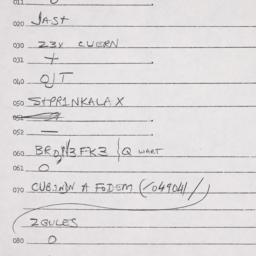 011
020 JAST
030 23X CWERN
031 +
040 OJT
050 STPR1NKALAX
051
052 —
060 BRO 3FK3 /Q WART
061 O
070 CUB.INDN A FODEM (/04904//)
2GULES
080 O